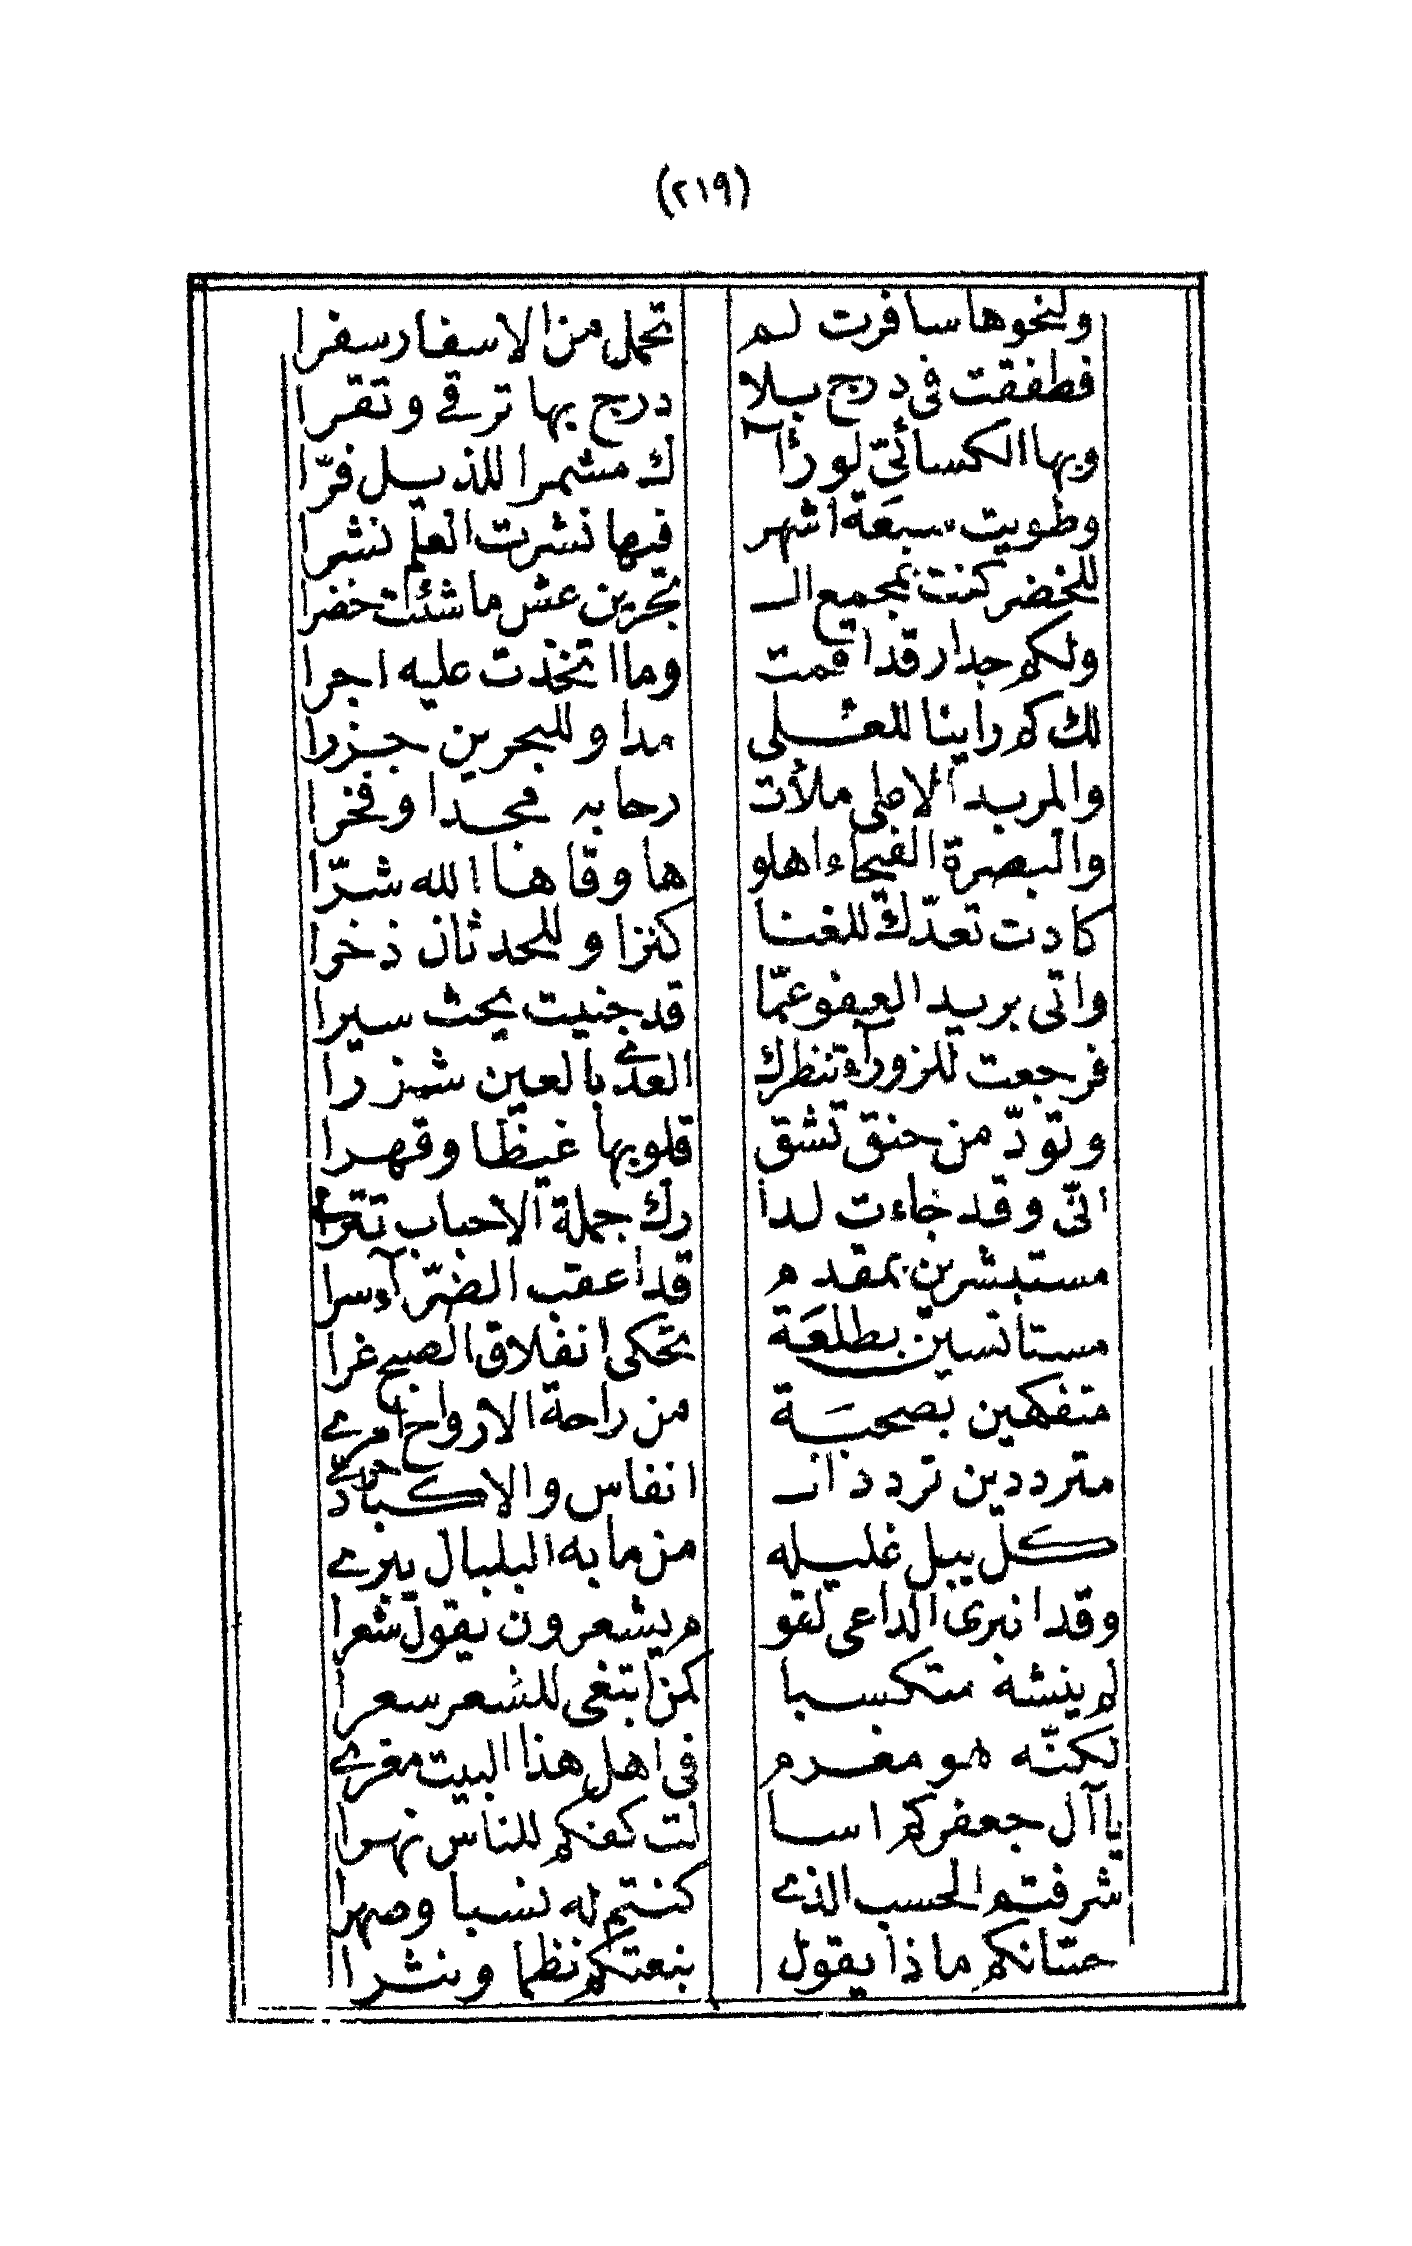 (٢١٩)
ولنحوها سافرت لم تحمل من الاسفار سفرا
فطفقت فى درج بلا درج بها ترقى وتقرا
وبها الكسائىّ لو رأآ ك مشمرا للذيل فرّا
وطويت سبعة اشهر فيها نشرت العلم نشرا
للخضر كنت بمجمع الـ بحرين عش ما شئت خضرا
ولكم جدار قد اقمت وما اتخذت عليه اجرا
لك كم راينا للعلى مدا وللبحرين جزرا
والمربد الاعلى ملأت رحابه مجدا وفخرا
والبصرة الفيحاء اهلو ها وقاها الله شرّا
كادت تعدّك للغنا كنزا وللحدثان ذخرا
واتى بريد العفو عمّا قد جنيت يحث سيرا
فرجعت للزورآء تنظرك العدى بالعين شزرا
وتودّ من حنق تشق قلوبها غيظا وقهرا
انّى وقد جاءت لدا رك جملة الاحباب تترى
مستبشرين بمقدم قد اعقب الضرّآء سرا
مستأنسين بطلعة تحكى انفلاق الصبح غرا
متفكهين بصحبة من راحة الارواح امرى
مترددين تردد انـ انفاس والاكباد حرّى
كلّ يبل غليله من ما به البلبال يبرى
وقد انبرى الداعى لقو م يشعرون يقول شعرا
لم ينشه متكسبا كمن ابتغى للشعر سعرا
لكنّه هو مغرم فى اهل هذا البيت مغرى
ياآل جعفركم اسا لت كفكم للناس نهرا
شرفتم الحسب الذى كنتم له نسبا وصهرا
حسّانكم ماذا يقول بنعتكم نظما ونثرا